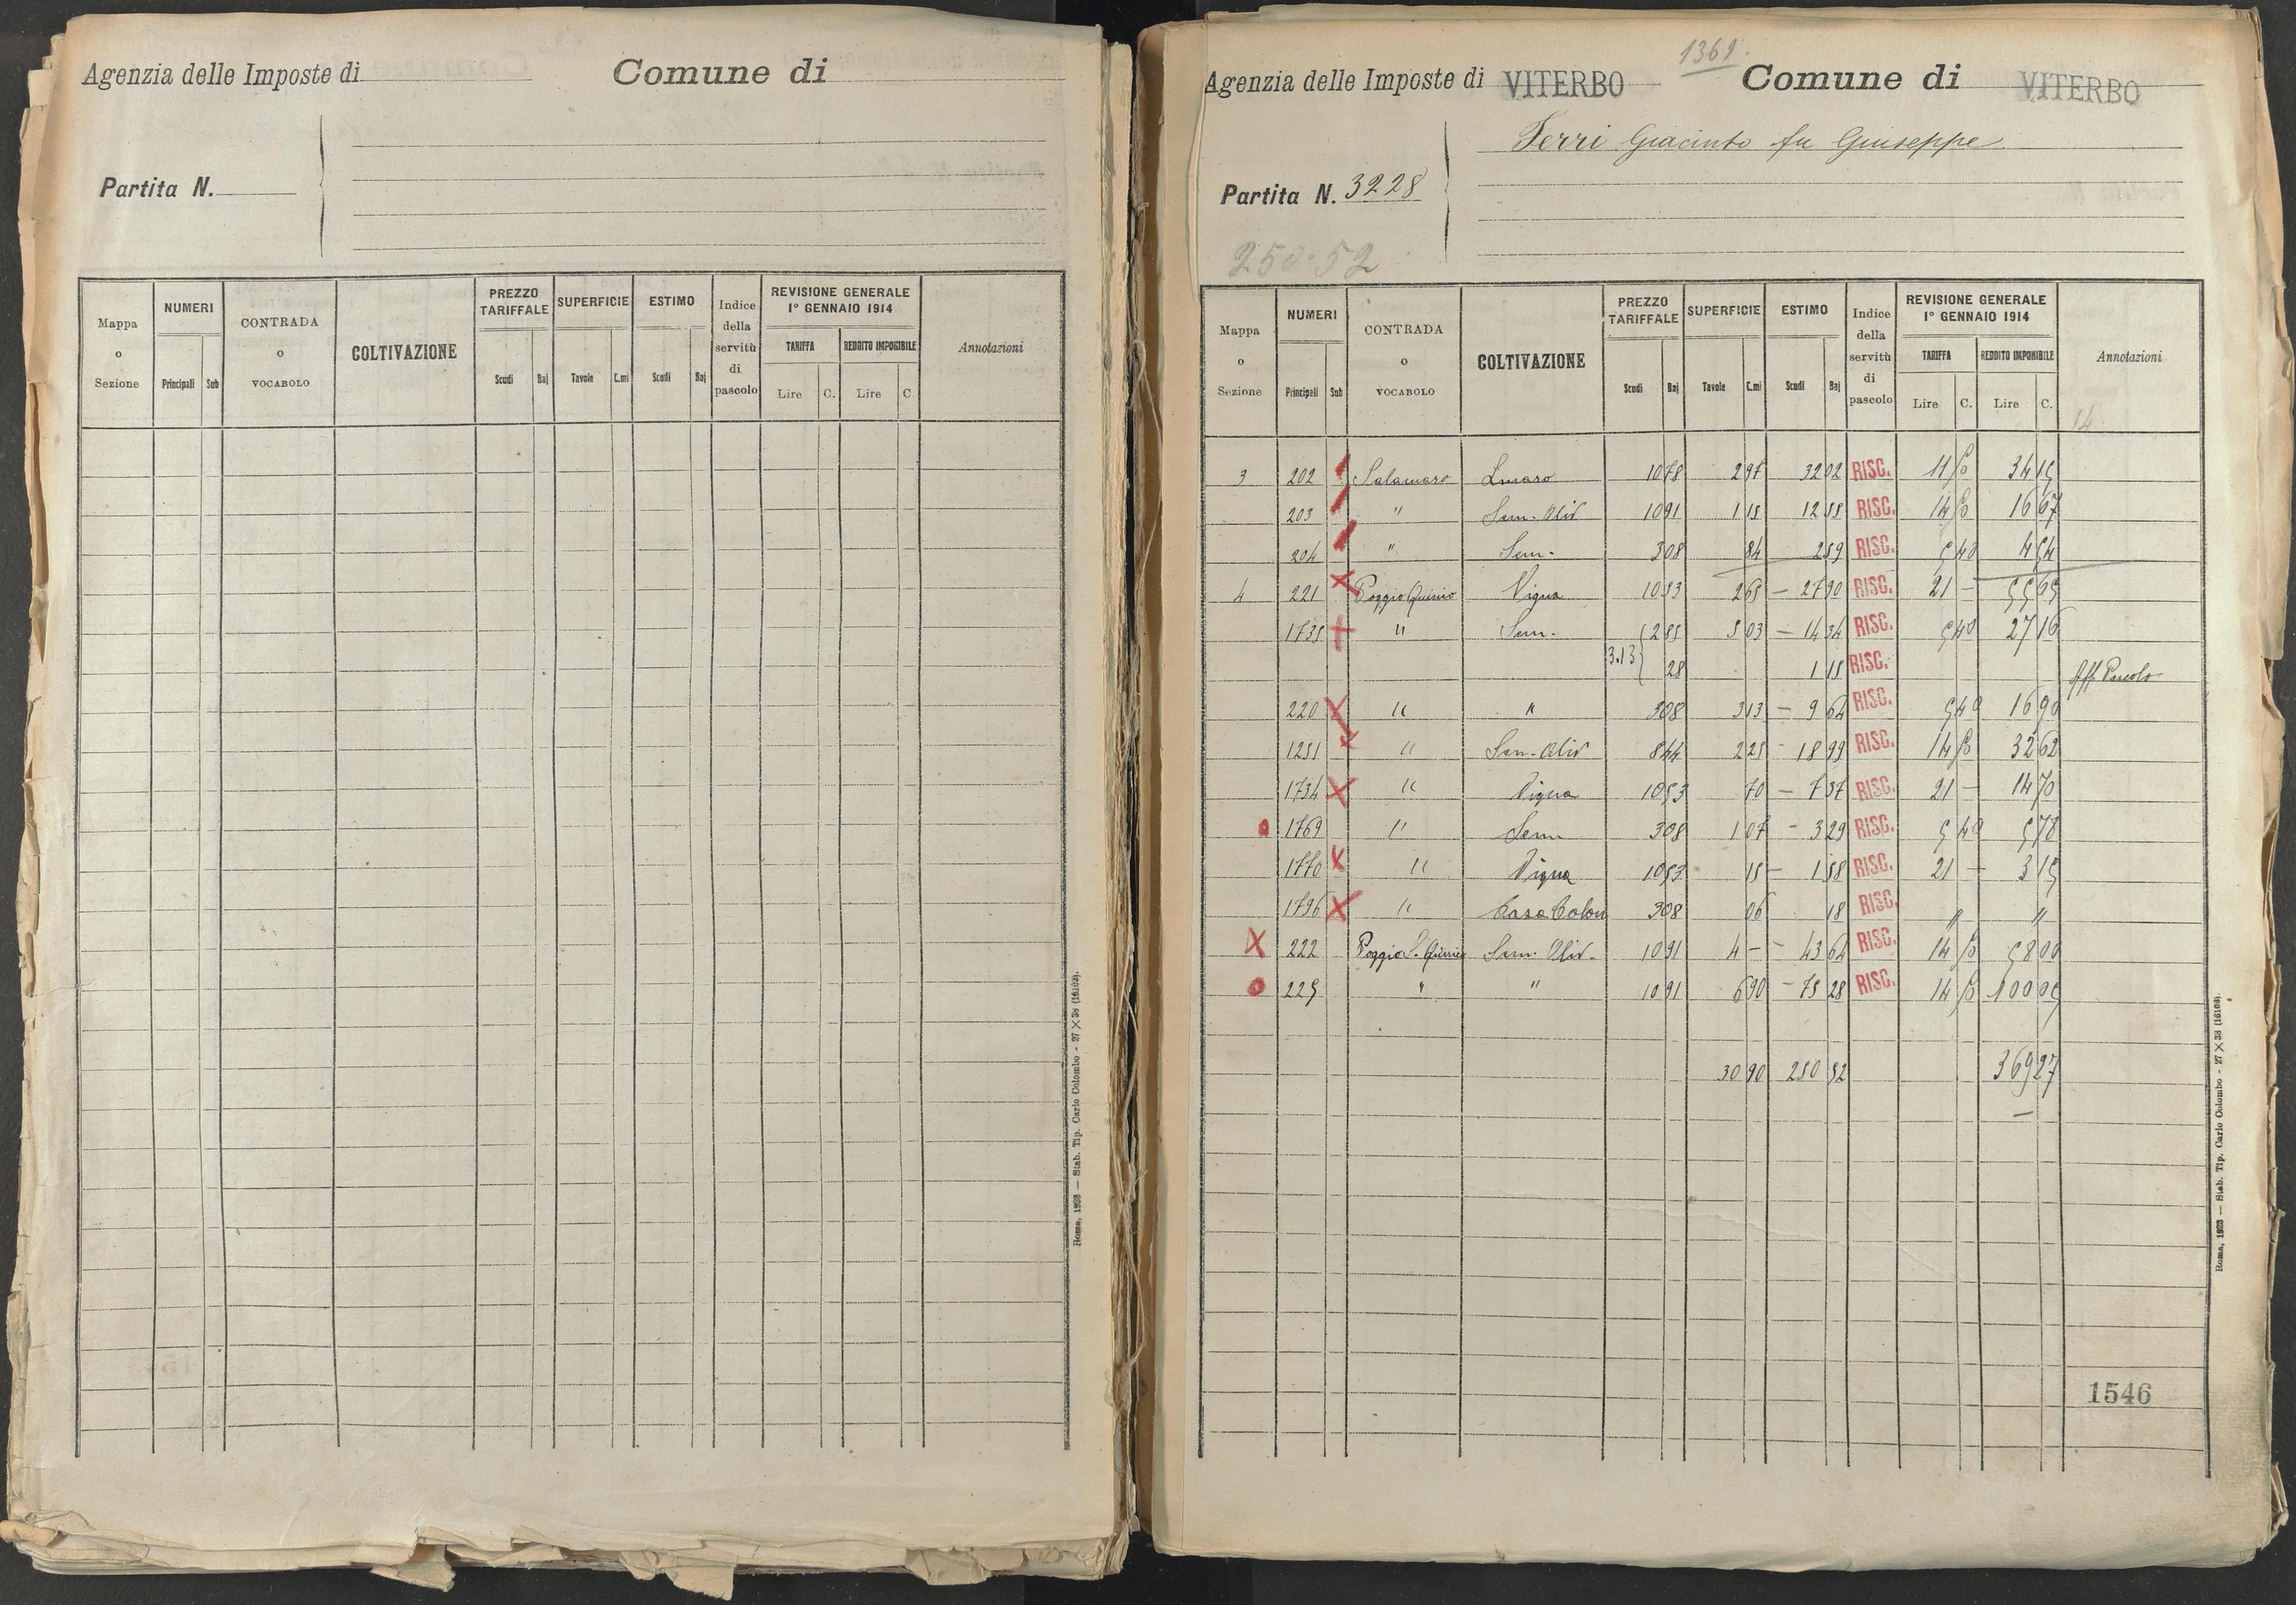 Agenzia delle Imposte di
Comune di
Partita N.
Mappa o Sezione
NUMERI
Principali Sub
CONTRADA o VOCABOLO
COLTIVAZIONE
PREZZO TARIFFALE
Scudi Baj
SUPERFICIE
Tavole C.mi
ESTIMO
Scudi Baj
Indice della servitù di pascolo
REVISIONE GENERALE
1° GENNAIO 1914
TARIFFA
Lire C.
REDDITO IMPONIBILE
Lire C
Annotazioni
Roma, 1923 — Stab. Tip. Carlo Colombo - 27 × 38 (16103).
1369.
Agenzia delle Imposte di VITERBO Comune di VITERBO
Ferri Giacinto fu Giuseppe
Partita N. 3228
250.52
Mappa o Sezione
NUMERI
Principali Sub
CONTRADA o VOCABOLO
COLTIVAZIONE
PREZZO TARIFFALE
Scudi Baj
SUPERFICIE
Tavole C.mi
ESTIMO
Scudi Baj
Indice della servitù di pascolo
REVISIONE GENERALE
1° GENNAIO 1914
TARIFFA
Lire C.
REDDITO IMPONIBILE
Lire C.
Annotazioni
14
3 202 Salamaro 10 78 2 97 32 02 RISC. 11 50 34 15
203 " Sem. Oliv 10 91 1 15 12 55 RISC. 14 50 16 67
204 " Sem. 3 08 84 2 59 RISC. 5 40 4 54
4 221 Poggio Quirico Vigna 10 53 2 65 — 27 90 RISC. 21 — 55 65
1735 " Sem. 2 85 5 03 — 14 34 RISC. 5 40 27 16
3.13 28 1 15 RISC. Aff. Pascolo
220 " " 3 08 3 13 — 9 64 RISC. 5 40 16 90
1251 " Sem. Oliv 8 44 2 25 - 18 99 RISC. 14 50 32 62
1734 " Vigna 10 53 70 — 7 37 RISC. 21 — 14 70
1769 " Sem 3 08 1 07 - 3 29 RISC. 5 40 5 78
1770 " Vigna 10 53 15 — 1 58 RISC. 21 — 3 15
1796 " Casa Colon 3 08 06 18 RISC. " "
222 Poggio S. Quirico Sem. Oliv. 10 91 4 — - 43 64 RISC. 14 50 58 00
225 " " 10 91 6 90 - 75 28 RISC. 14 50 100 05
30 90 250 52 369 27
1546
Roma, 1923 — Stab. Tip. Carlo Colombo - 27 × 38 (16103).